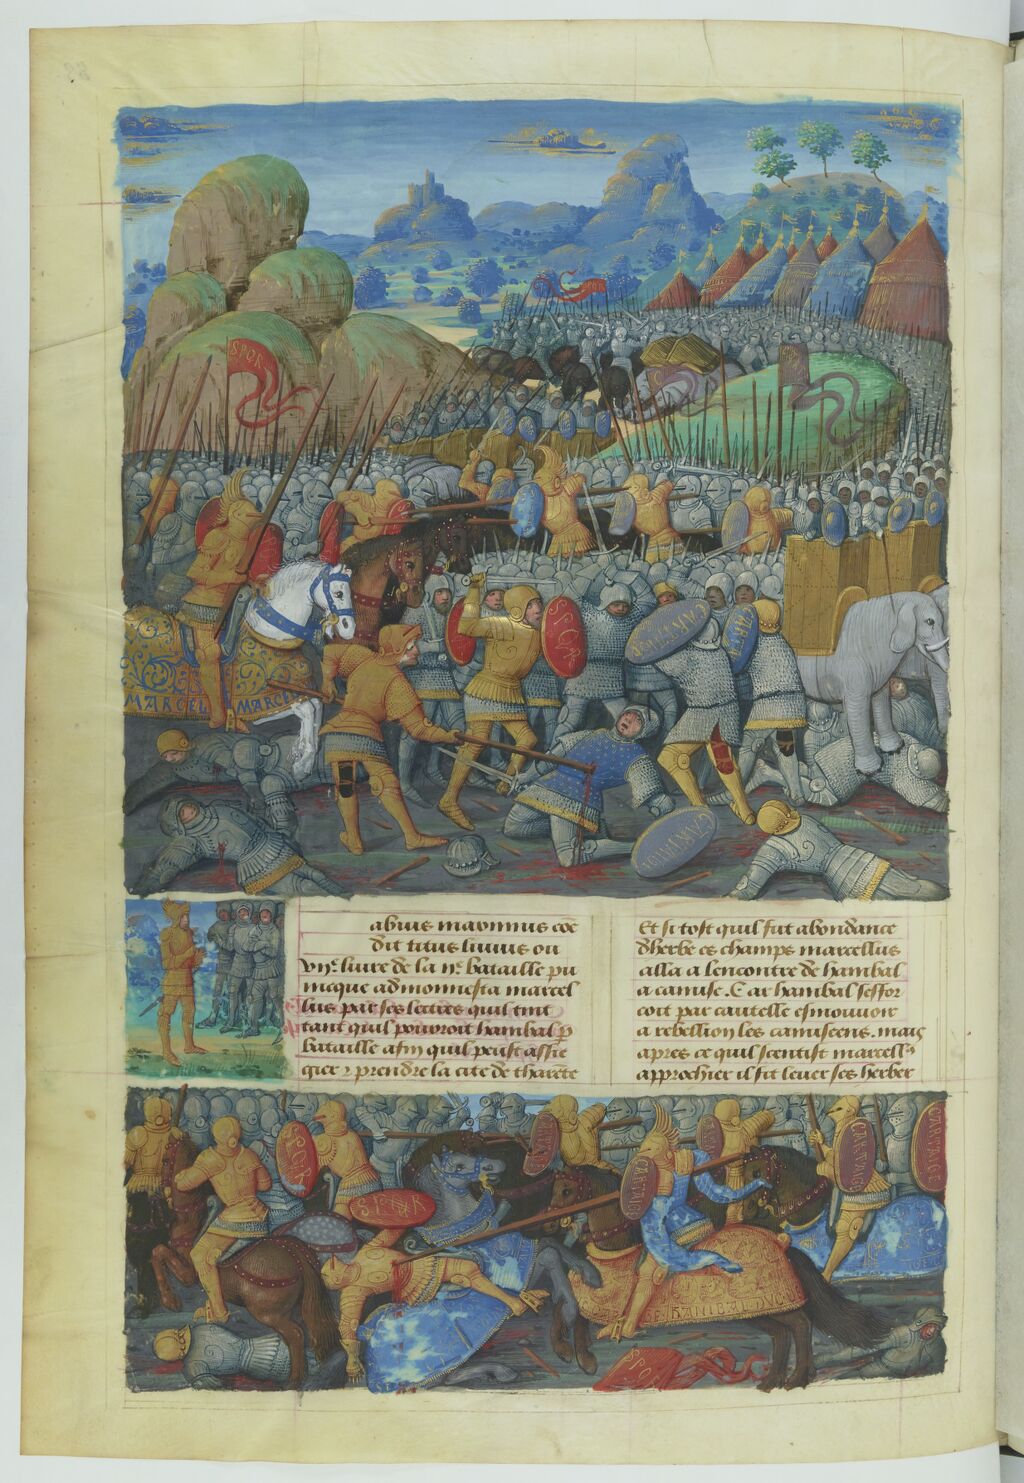 SPQR
SPQR
MARCEL MARCEL
SPQR
CARTA
CARTAIGE
abius maximus cõe
dit titus liuius ou
vııᵉ. liure de la ııᵉ. bataille pu
nicque admonnesta marcel
lus par ses lectres quil tint
tant quil pourroit hanibal p̃
bataille afin quil peust assie
gier ⁊ prendre la cite de tharẽte
Et si tost quil fut abondance
dherbe es champs marcellus
alla a lencontre de hanibal
a canuse. Car hanibal seffor
coit par cautelle esmouuoir
a rebellion les canuscens. mais
apres ce quil scentist marcellꝰ
approchier il fit leuer ses herber
SPQR
CARTAIGE
HANIBAL DUC
SPQR